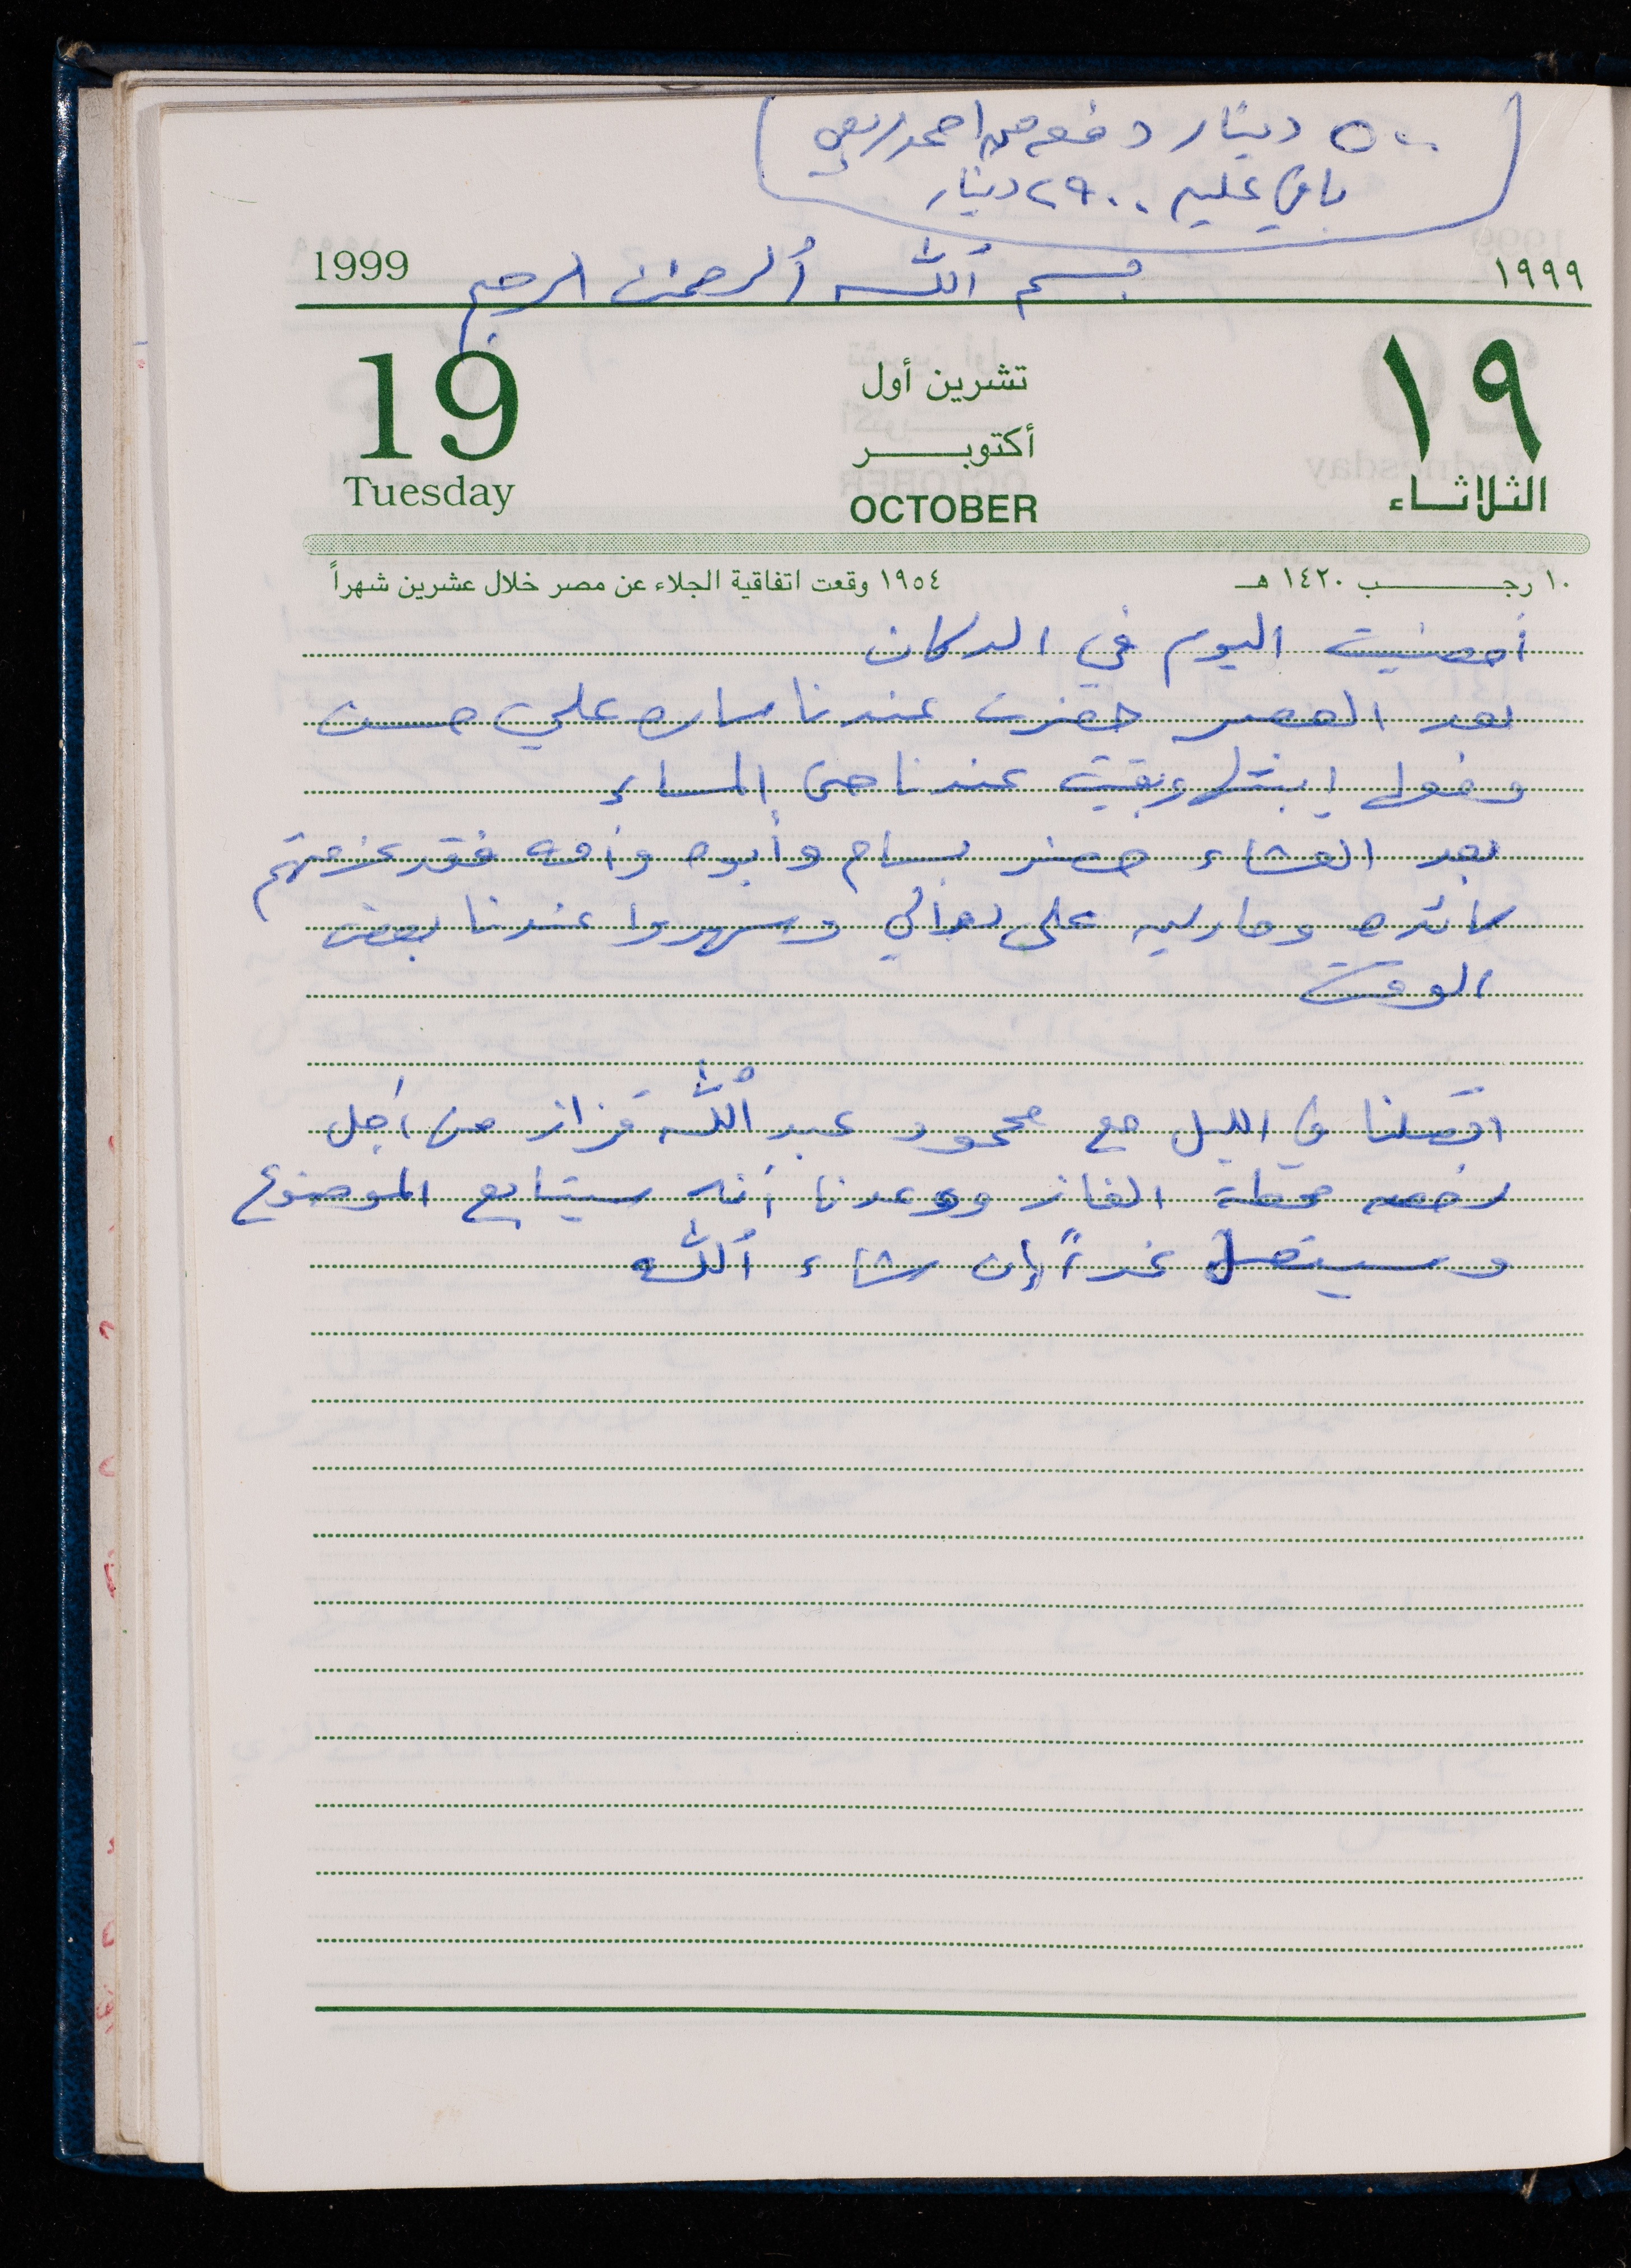 ٥٠٠ دينار دفعه من احمد
باقي عليه ٢٩٠٠ دينار
بسم الله الرحمن الرحيم
1999 ١٩٩٩
19 تشرين أول ١٩
أكتوبـــر
Tuesday OCTOBER الثلاثـاء
١٠ رجـــب ١٤٢٠ هـ ١٩٥٤ وقعت اتفاقية الجلاء عن مصر خلال عشرين شهراً
أمضيت اليوم في الدكان
بعد العصر حضرت عندنا ساره علي حسن
ابنتها وبقيت عندنا حتى المساء
بعد العشاء حضر بسام وأبوه وأمه فقد عزمتهم
مائده على دوالي وسهروا عندنا بعض
الوقت
اتصلنا في الليل مع محمود عبد الله قزاز من أجل
رخصه محطة الغاز ووعدنا أنه سيتابع الموضوع
وسيتصل غداً إن شاء الله